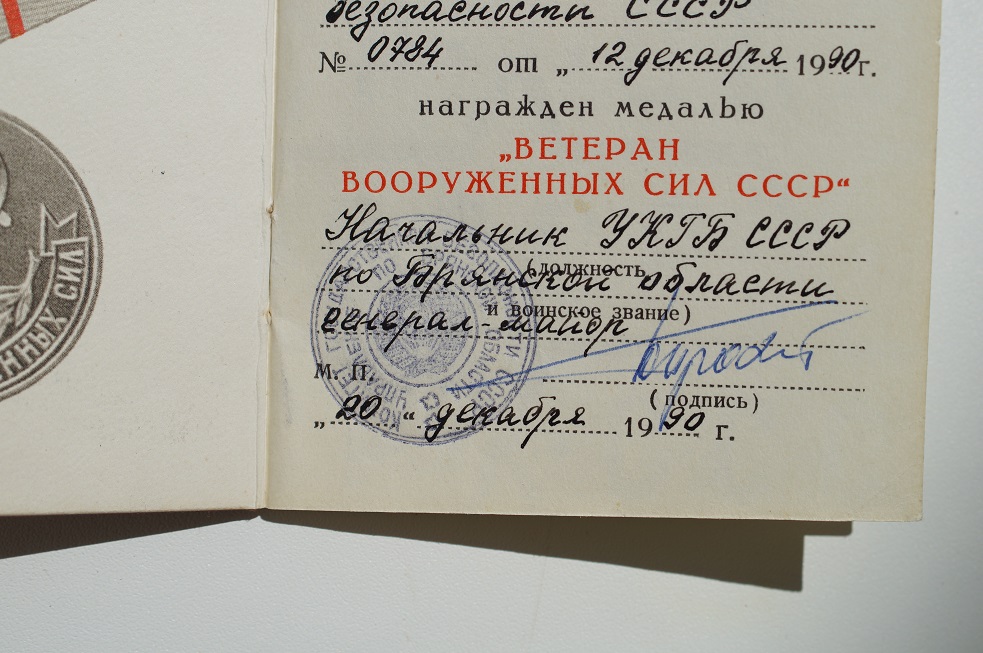 безопасности СССР
№ 0784 от „ 12 декабря 1990г.
награжден медалью
„ВЕТЕРАН
ВООРУЖЕННЫХ СИЛ СССР“
Начальник УКГБ СССР
(должность
по Брянской области
и воинское звание)
генерал-майор
М. П.
(подпись)
„ 20 “ декабря 1990 г.
ЕННЫХ СИЛ